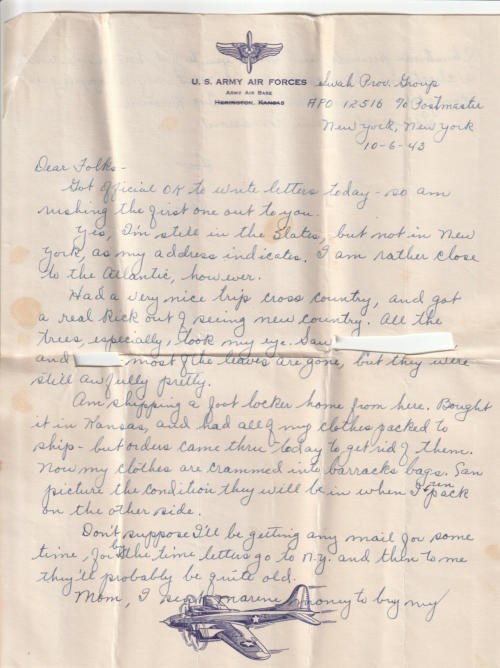 U. S. ARMY AIR FORCES
ARMY AIR BASE
HERINGTON, KANSAS
Swah Prov. Group
APO 12516 % Postmaster
New York, New York
10-6-43
Dear Folks-
Got official OK to write letters today - so am
rushing the first one out to you.
Yes, I'm still in the States, but not in New
York, as my address indicates. I am rather close
to the Atlantic, however.
Had a very nice trip cross country, and got
a real kick out of seeing new country. All the
trees, especially, took my eye. Saw
and most of the leaves are gone, but they were
still awfully pretty.
Am shipping a foot locker home from here. Bought
it in Kansas, and had all of my clothes packed to
ship - but orders came thru today to get rid of them.
Now my clothes are crammed into barracks bags. Can
picture the condition they will be in when I unpack
on the other side.
Don't suppose I'll be getting any mail for some
time, for by the time letters go to N.Y. and then to me
they'll probably be quite old.
Mom, I sent Marine money to buy my